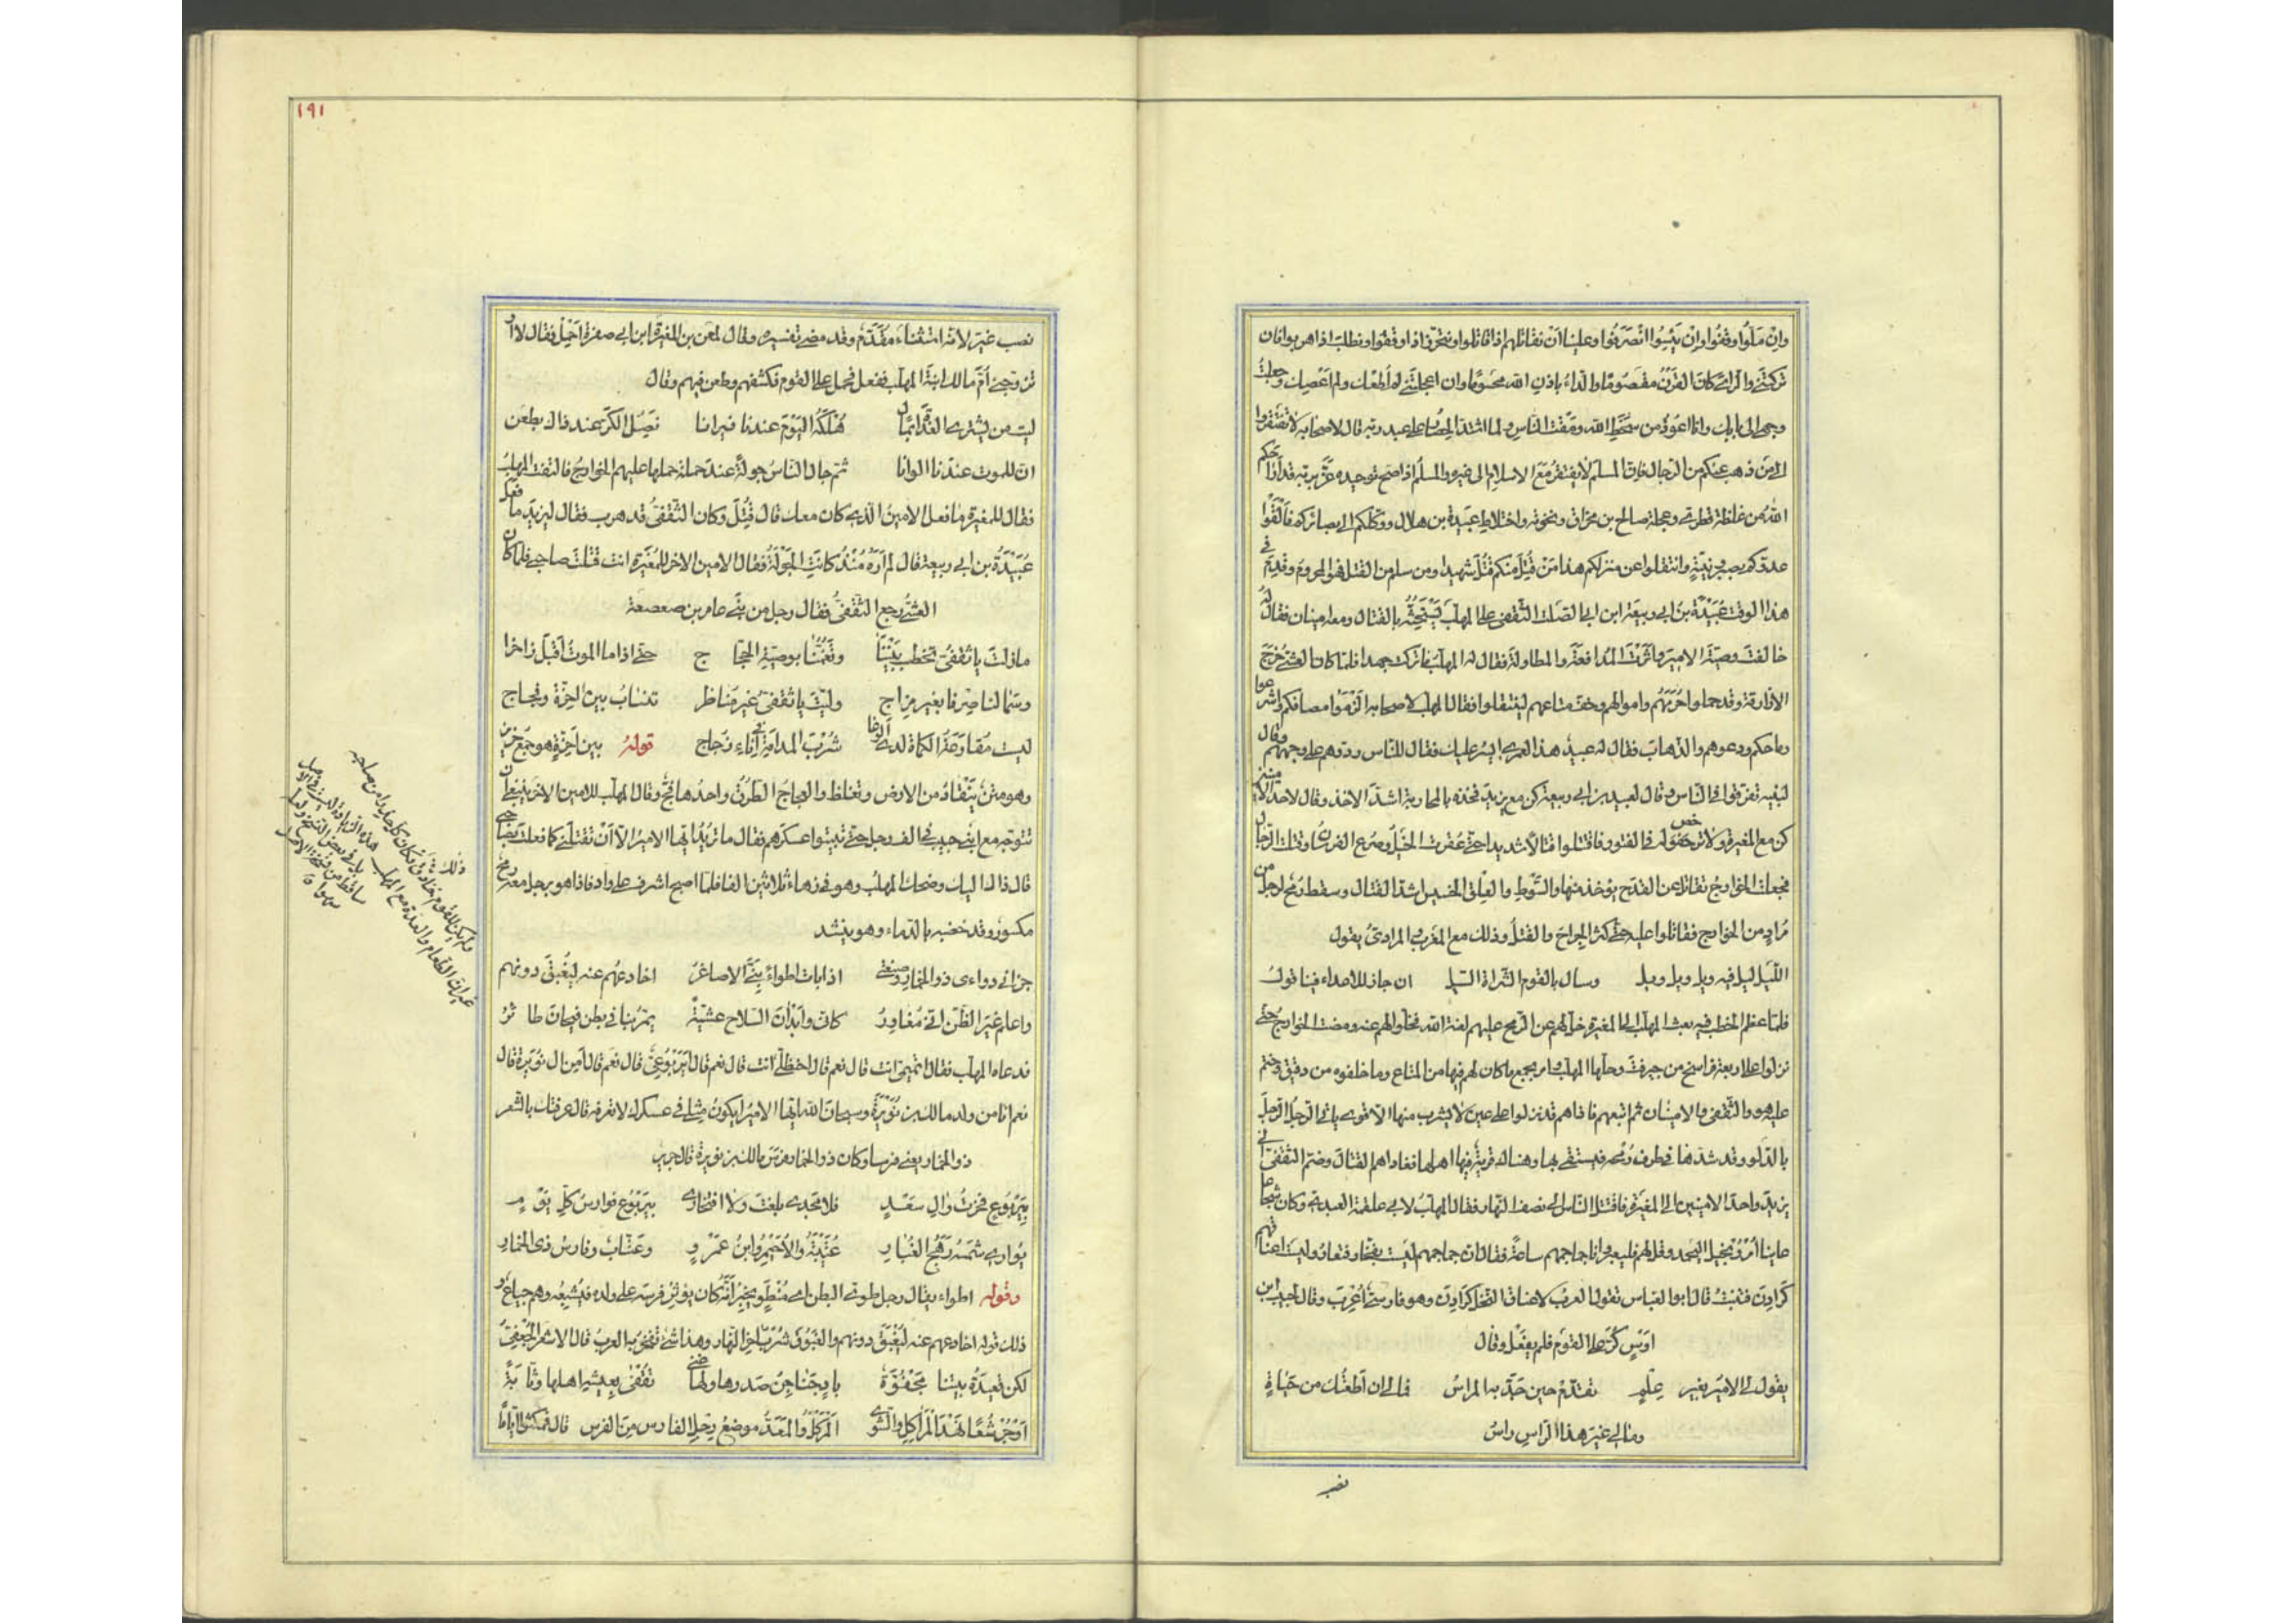 وان ملّوا وقفوا وان يئسوا انصرفوا وعلينا ان نقاتلهم اذا قاتلوا ونتحرّز اذا وقفوا ونطلب اذا هربوا فان
تركتنے والراى كان القرن مقصوما والداء باذن الله محسوما وان اعجلتنے لم اطعك ولم اعصك وجعلت
وجهى الى بابك وانا اعوذ من سخط الله ومقت الناس ولما اشتد الحصار على عبد ربه قال لاصحابه لا تفتقروا
الى من ذهب عنكم من الرجال فان المسلم لا يفتقر مع الاسلام الى غيره والمسلم اذا صح توحيده عزّ بربه قد اراحكم
الله من غلظة قطرى وعجلة صالح بن مخراق ونخوته واختلاط عبيدة بن هلال ووكلكم الى بصائركم فالقوا
عدوكم بصبر ونيّة وانتقلوا عن منزلكم هذا من قتل منكم قتل شهيدا ومن سلم من القتل فهو المحروم وقدم فى
هذا الوقت عبيدة بن ابى ربيعة ابن ابى الصلت الثقفى على المهلب يستحثّه بالقتال ومعه امينان فقال له
خالفت وصيّة الامير واثرت المدافعة والمطاولة فقال له المهلب ما تركت جهدا فلما كان العشى خرج
الازارقة وقد حملوا حرمهم واموالهم وخفّ متاعهم لينتقلوا فقال المهلب لاصحابه الزموا مصافكم واشرعوا
رماحكم ودعوهم والذهاب فقال له عبيد هذا لعمرى ايسر عليك فقال للناس ردوهم على وجههم وقال
لبنيه تفرقوا فى الناس وقال لعبيد بن ابى ربيعة كن مع يزيد فخذه بالمحاربة اشد الاخذ وقال لاحد الامينين
كن مع المغيرة ولا ترخص له فى الفتور فاقتتلوا قتالا شديدا حتى عقرت الخيل وصرع الفرسان وقتلت الرجال
فجعلت الخوارج تقاتل عن القدح يؤخذ منها والسوط والعلق الخسيس اشد القتال وسقط رمح لرجل من
مراد من الخوارج فقاتلوا عليه حتى كثر الجراح والقتل وذلك مع المغرب والمرادى يقول
الليل ليل فيه ويل ويل ويل وسال بالقوم الشراة السيل ان جاز للاعداء فينا قول
فلما عظم الخطب فيه بعث المهلب الى المغيرة خلّ لهم عن الرمح عليهم لعنة الله فخلّوا لهم عنه ومضت الخوارج حتى
نزلوا على اربعة فراسخ من جيرفت ودخلها المهلب وامر بجمع ما كان لهم فيها من المتاع وما خلفوه من دقيق وختم
عليه هو والثقفى والامينان ثم اتبعهم فاذا هم قد نزلوا على عين لا يشرب منها الا قوى ياتى الرجل الرجل
بالدلو وقد شدها فى طرف رمحه فيستقى بها وهناك قرية فيها اهلها فغاداهم القتال وضم الثقفى الى
يزيد واحد الامينين الى المغيرة فاقتتل الناس الى نصف النهار فقال المهلب لابى علقمة العبدى وكان شجاعا
عاينا امدد بخيل اليحمد وقل لهم فليعيرونا جماجمهم ساعة فقال ان جماجمهم ليست بفخار فتعار وليست اعناقهم
كرادن فتنبت قال ابو العباس تقول العرب لاعناق النخل كرادن وهو فارسى اعرب وقال لحبيب ابن
اوس كرّ على القوم فلم يفعل وقال
يقول لى الامير بغير علم تقدّم حين جدّ به المراس فما لى ان اطعتك من حياة
وما لى غير هذا الراس راس
نصب
١٩١
نصب غير لانه استثناء مقدّم وقد مضى تفسيره وقال لمعن بن المغيرة ابن ابى صفرة احمل فقال لا او
تزوجنى ام مالك ابنة المهلب ففعل فحمل على القوم فكشفهم وطعن فيهم وقال
ليت من يشترى الغداة بمال هلكه اليوم عندنا فيرانا نصل الكر عند ذاك بطعن
ان للموت عندنا الوانا ثم جال الناس جولة عند حملة حملها عليهم الخوارج فالتفت المهلب
فقال للمغيرة ما فعل الامين الذى كان معك قال قتل وكان الثقفى قد هرب فقال ليزيد ما فعل
عبيدة بن ابى ربيعة قال لم اره منذ كانت الجولة فقال الامين الاخر للمغيرة انت قتلت صاحبى فلما كان
العشى رجع الثقفى فقال رجل من بنى عامر بن صعصعة
ما زلت يا ثقفى تخطب بيننا وتغمّنا بوصية الحجاج حتى اذا ما الموت اقبل زاخرا
وسما لنا صرفا بغير مزاج وليت يا ثقفى غير مناظر تنساب بين احزة وفجاج
ليست مقارعة الكماة لدى الوغا شرب المدامة فى اناء زجاج قوله بين احزة هو جمع حزيز
وهو متن ينقاد من الارض ويغلظ والفجاج الطرق واحدها فج وقال المهلب للامين الاخر ينبغى ان
تتوجه مع ابنى حبيب فى الف رجل حتى تبيتوا عسكرهم فقال ما تريد ايها الامير الا ان تقتلنى كما فعلت بصاحبى
قال ذاك اليك وضحك المهلب وهو فى زهاء ثلاثين الفا فلما اصبح اشرف على واد فاذا هو برجل معه رمح
مكسور وقد خضبه بالدماء وهو ينشد
جزانى دوائى ذو الخمار وصنعتى اذا بات اطواء بنىّ الاصاغر اخادعهم عنه ليغبق دونهم
واعلم غير الظن انى مغاور كانى وابدان السلاح عشيّة يمر بنا فى بطن فيحان طائر
فدعاه المهلب فقال اتميمى انت قال نعم قال احنظلى انت قال نعم قال ايربوعى قال نعم قال امن ال نويرة قال
نعم انا من ولد مالك بن نويرة وسبحان الله ايها الامير ايكون مثلى فى عسكرك لا تعرفه قال عرفتك بالشعر
ذو الخمار يعنى فرسا وكان ذو الخمار فرس مالك بن نويرة قال جرير
بيربوع فخرت وال سعد فلا مجدى بلغت ولا افتخارى بيربوع فوارس كل يوم
يوارى شمسه رهج الغبار عتيبة والاحيمر وابن عمرو وعتاب وفارس ذى الخمار
وقوله اطواء يقال رجل طوى البطن اى منطو يخبر انه كان يؤثر فرسه على ولده فيشبعه وهم جياع و
ذلك قوله اخادعهم عنه ليغبق دونهم والغبوق شرب اخر النهار وهذا شئ تفخر به العرب قال الاشعر الجعفى
لكن قعيدة بيتنا مجفوّة باد جناجن صدرها ولها غنى نقفى بعيشة اهلها وثابة
او جرشعا نهد المراكل والشوى المركل والمعد موضع رجل الفارس من الفرس قال فمكثوا اياما